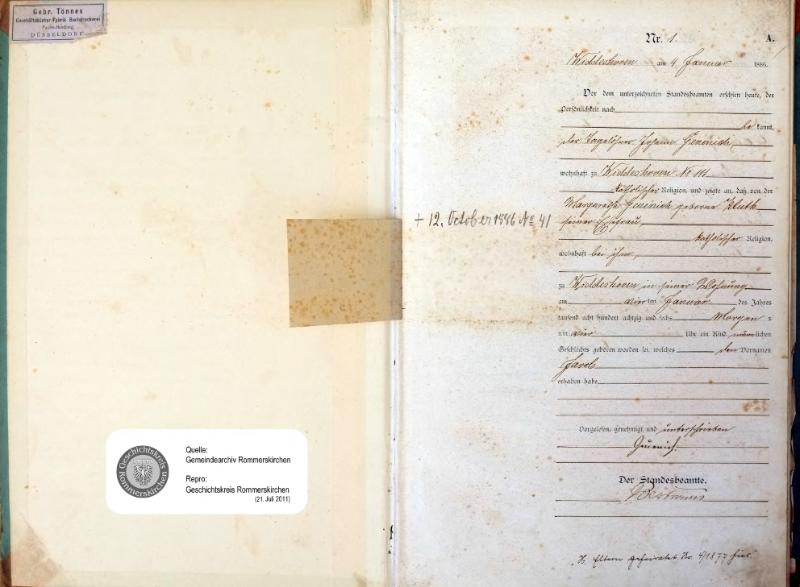 Gebr. Tönnes
Geschäftsbücher-Fabrik Buchdruckerei
DÜSSELDORF
Geschichtskreis Rommerskirchen
Quelle:
Gemeindearchiv Rommerskirchen
Repro:
Geschichtskreis Rommerskirchen
(21. Juli 2011)
+ 12. October 1886 No 41
Nr. 1. A.
Widdeshoven am 4 Januar 1886.
Vor dem unterzeichneten Standesbeamten erschien heute, der
Persönlichkeit nach
bekannt,
der Tagelöhner Johann
wohnhaft zu Widdeshoven No 111
katholischer Religion, und zeigte an, daß von der
geborene Kluth
seiner Ehefrau
katholischer Religion,
wohnhaft bei ihm,
zu Widdeshoven in seiner Wohnung
am vierten Januar des Jahres
tausend acht hundert achtzig und sechs Morgens
um vier Uhr ein Kind männlichen
Geschlechts geboren worden sei, welches den Vornamen
Jacob
erhalten habe
Vorgelesen, genehmigt und unterschrieben
Der Standesbeamte.
Eltern geheiratet Nr. 4/1877